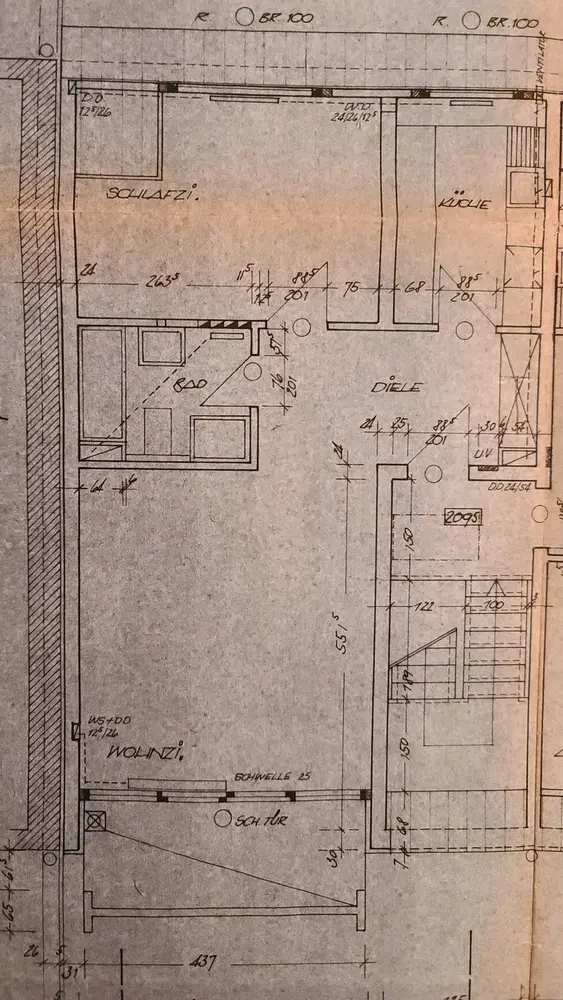 R. BR. 100
R. BR. 100
VENTILATOR
DD
12⁵/26
DUTD
24/26/12⁵
SCHLAFZI.
KÜCHE
24
263⁵
11⁵
12⁵
88⁵
201
76
68
88⁵
201
57⁵
BAD
76
201
DIELE
24
25
88⁵
201
30
54
U.V.
64
6
24
DD 24/54
2095
150
551⁵
122
100
189
WS+DD
12⁵/26
WOHNZI.
SCHWELLE 25
150
SCH. TÜR
68
30
7
61⁵
65
26
5
31
437
5